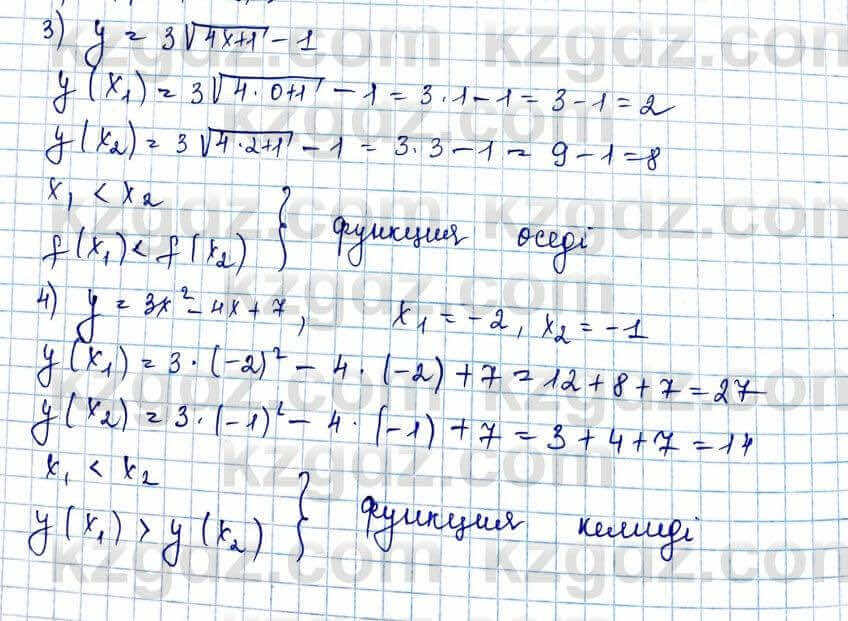 3) y = 3√4x+1 - 1
y(x₁) = 3√4·0+1 - 1 = 3·1-1 = 3-1 = 2
y(x₂) = 3√4·2+1 - 1 = 3·3-1 = 9-1 = 8
x₁ < x₂
f(x₁) < f(x₂) } функция өседі
4) y = 3x² - 4x + 7, x₁ = -2, x₂ = -1
y(x₁) = 3·(-2)² - 4·(-2) + 7 = 12 + 8 + 7 = 27
y(x₂) = 3·(-1)² - 4·(-1) + 7 = 3 + 4 + 7 = 14
x₁ < x₂
y(x₁) > y(x₂) } функция кемиді
kzgdz.com